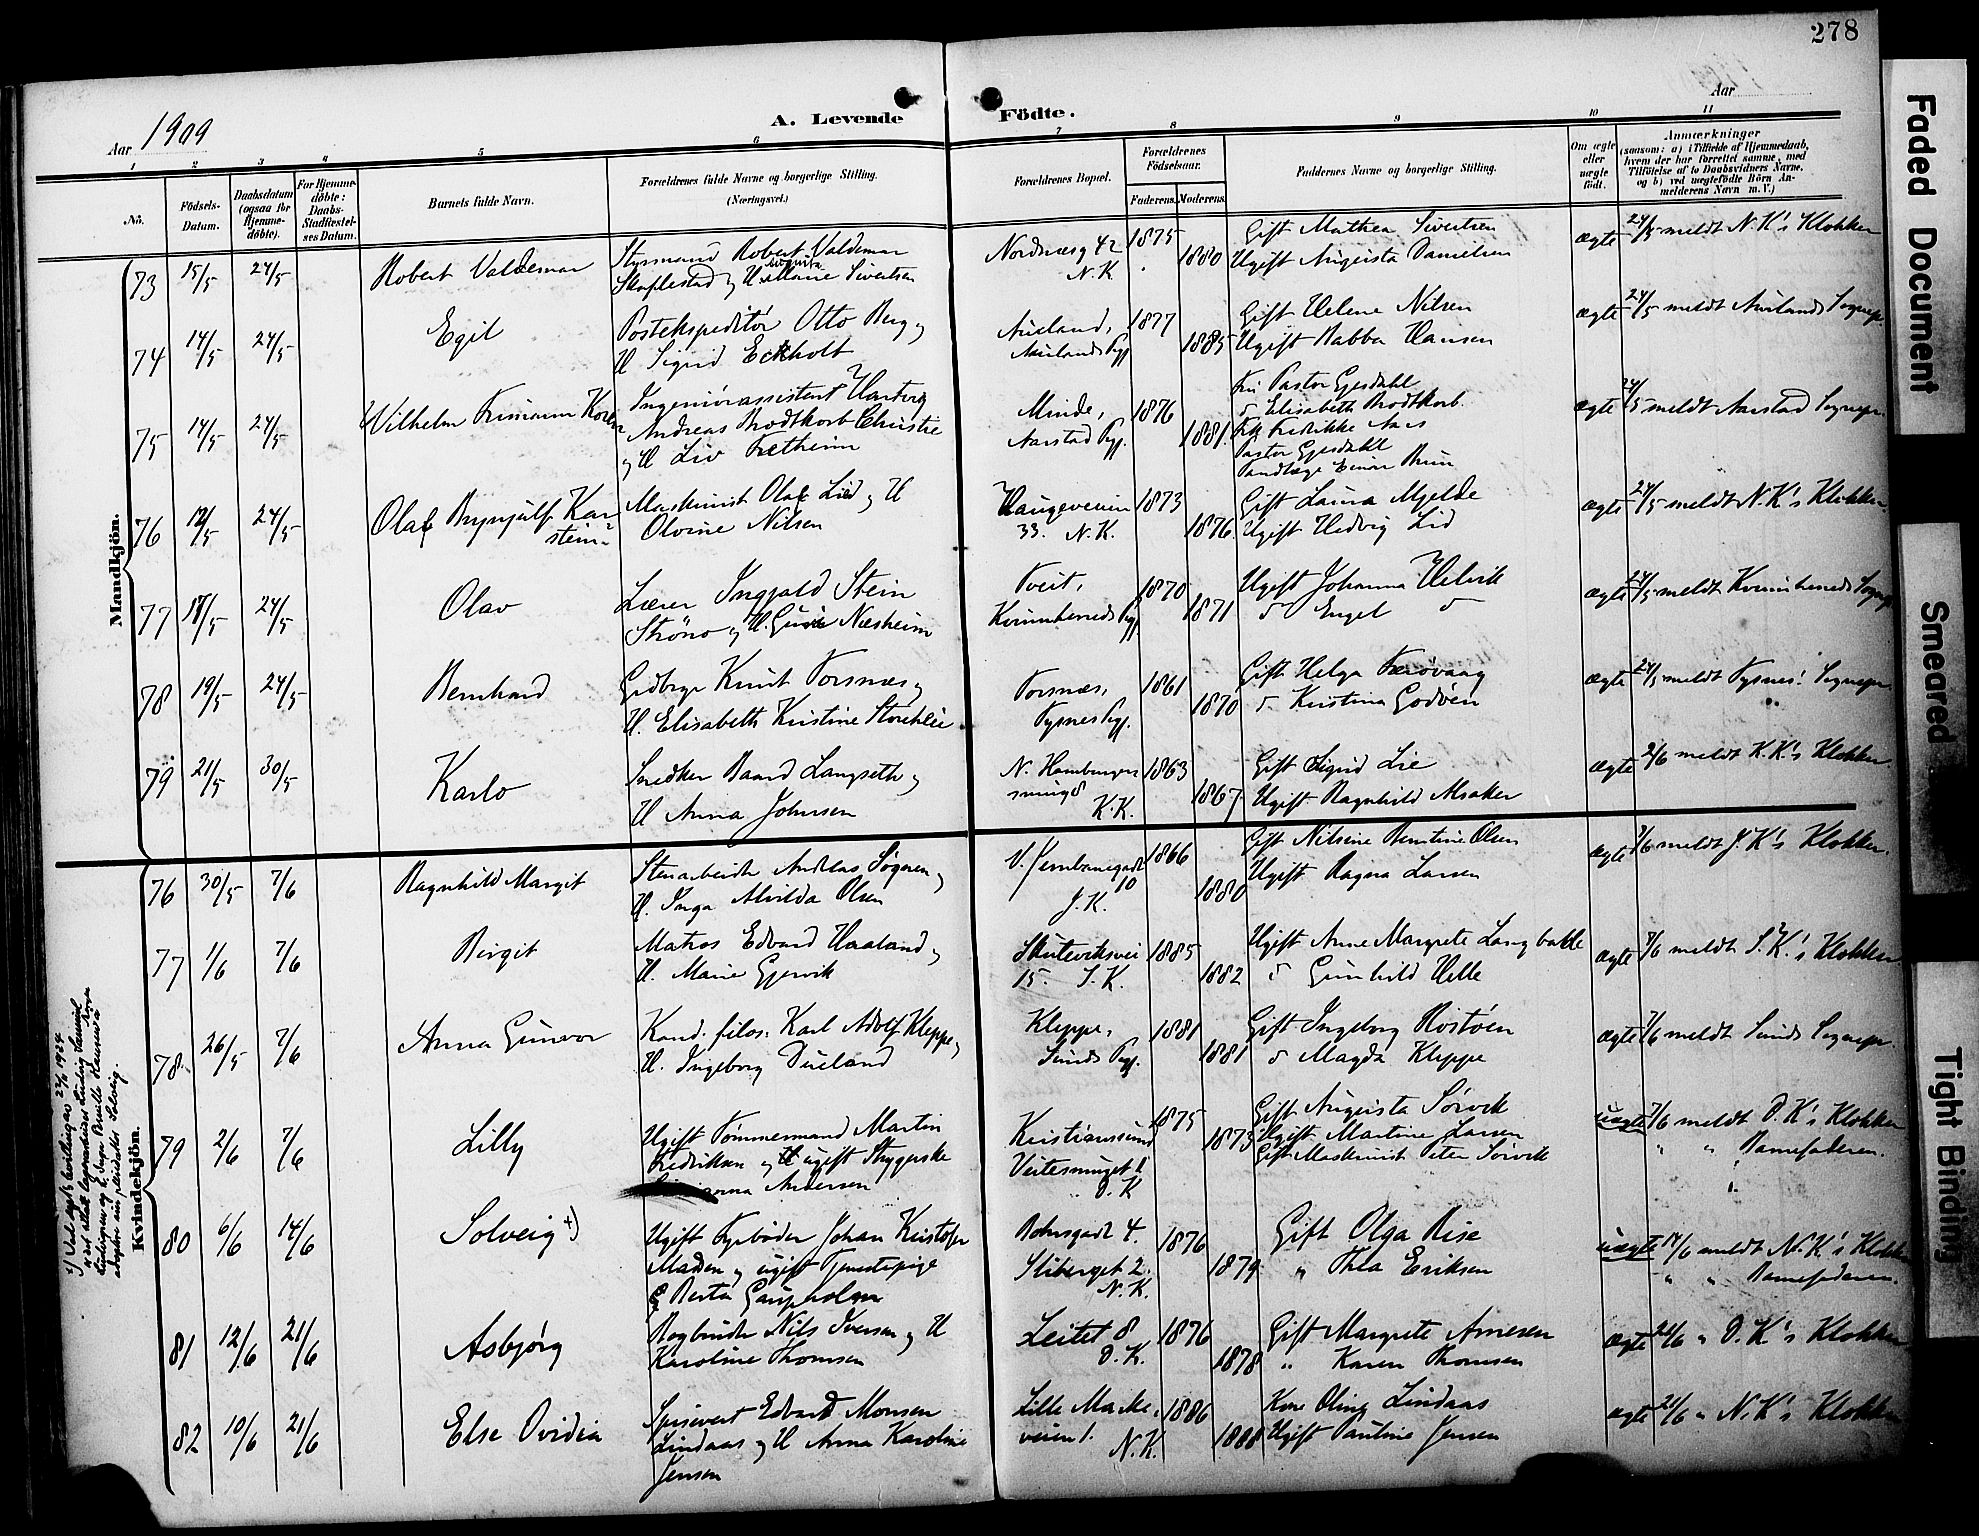 278
Aar 1909
A. Levende Födte.
Aar
1 2 3 4 5 6 7 8 9 10 11
No.
Födsels-Datum.
Daabsdatum (ogsaa for Hjemme-döbte).
For Hjemme-döbte: Daabs-Stadfæstel-ses Datum.
Barnets fulde Navn.
Forældrenes fulde Navne og borgerlige Stilling. (Næringsvei.)
Forældrenes Bopæl.
Forældrenes Födselsaar.
Faderens. Moderens.
Faddernes Navne og borgerlige Stilling.
Om ægte eller uægte födt.
Anmærkninger (saasom: a) i Tilfælde af Hjemmedaab, hvem der har forrettet samme, med Tilföielse af to Daabsvidners Navne, og b) ved uægtefödte Börn Anmelderens Navn m. V.)
Mandkjön.
73 15/5 24/5 Robert Valdemar
Styrmand Robert Valdemar
Skaflestad og H. Marie Sivertsen
Nordnæsg 42 N.K. 1875 1880
Gift Mathea Sivertsen
Ugift Augusta Danielsen
ægte 24/5 meldt N.K's Klokker
74 14/5 24/5 Egil
Postekspeditör Otto Berg og
H Sigrid Eckholt
Aurland, Aurlands Pgj 1877 1885
Gift Helene Nilsen
Ugift Rabba Hansen
ægte 24/5 meldt Aurlands Sognepr.
75 14/5 24/5 Wilhelm Frimann Koren
Ingeniörassistent Hartvig
Andreas Brodtkorb Christie
og H Liv Fretheim
Minde, Aarstad Pgj. 1876 1881
Fru Pastor Gjesdahl
Elisabeth Brodtkorb.
Frk Fredrikke Aars
Pastor Gjesdahl
Tandlæge Einar Brun
ægte 24/5 meldt Aarstad Sognepr.
76 12/5 24/5 Olaf Brynjulf Karstein
Maskinist Olaf Lid og H
Olvine Nilsen
Haugeveien 33. N.K. 1873 1876
Gift Laura Mjelde
Ugift Hedvig Lid
ægte 24/5 meldt N.K's Klokker
77 24/5 Olav
Lærer Ingjald Stein
Strönö og H. Guri Næsheim
Tveit, Kvinnherreds Pgj 1870 1871
Ugift Johanna Helvik
Engel
ægte 24/5 meldt Kvinnherreds Sognepr
78 19/5 24/5 Bernhard
Grdbrgr Knut Torsnæs og
H. Elisabeth Kristine Storehlie
Torsnæs, Tysnes Pgj. 1861 1870
Gift Helga Færövaag
Kristina Godöen
ægte 24/5 meldt Tysnes' Sognepr
79 21/5 30/5 Karlo
Snedker Baard Langseth og
H Anna Johnsen
N. Hamburgersmug 8 K.K. 1863 1867
Gift Sigrid Lie
Ugift Ragnhild Alsaker
ægte 2/6 meldt K.K's Klokker
Kvindekjön.
76 30/5 7/6 Ragnhild Margit
Stenarbeider Andreas Sognen og
H. Inga Alvilda Olsen
V. Jernbanegade 10 J.K. 1866 1880
Gift Nilsine Berntine Olsen
Ugift Ragna Larsen
ægte 7/6 meldt J.K's Klokker.
77 1/6 7/6 Birgit
Matros Edvard Haaland og
H. Marie Gjervik
Skuteviksvei 15. S.K. 1885 1882
Ugift Anne Margrete Langbakke
Gunhild Helle
ægte 7/6 meldt S.K.'s Klokker
78 26/5 7/6 Anna Gunvor
Kand. filos. Karl Adolf Kleppe og
H. Ingeborg Dueland
Kleppe, Sunds Pgj. 1881 1881
Gift Ingeborg Rostöen
Magda Kleppe
ægte 7/6 meldt Sunds Sognepr.
79 2/6 7/6 Lilly
Ugift Tömmermand Martin
Fredriksen og ugift Strygerske
Andersen
Kristianssund
Veitesmuget 1 D.K 1875 1873
Gift Augusta Sörvik
Ugift Martine Larsen
Gift Maskinist Peter Sörvik
uægte 7/6 meldt D.K's Klokker
" " Barnefaderen.
80 6/6 14/6 Solveig +)
Ugift Fyrböder Johan Kristofer
Madsen og ugift Tjenestepige
Berta Gaupholm
Bohrsgade 4.
Stiberget 2. N.K. 1876 1879
Gift Olga Rise
" Thla Eriksen
uægte 14/6 meldt N.K's Klokker
" " Barnefaderen.
81 12/6 21/6 Asbjörg
Bogbinder Nils Iversen og H
Karoline Thomsen
Leitet 8 D.K. 1876 1878
Gift Margrete Arnesen
" Karen Thomsen
ægte 21/6 " D.K's Klokker
82 10/6 21/6 Else Ovidia
Spisevert Edvard Monsen
Lindaas og H Anna Karoline
Jensen
Lille Markeveien 1. N.K. 1886 1888
Kone Oline Lindaas
Ugift Pauline Jensen
ægte 21/6 " N.K's Klokker
Faded Document
Smeared
Tight Binding